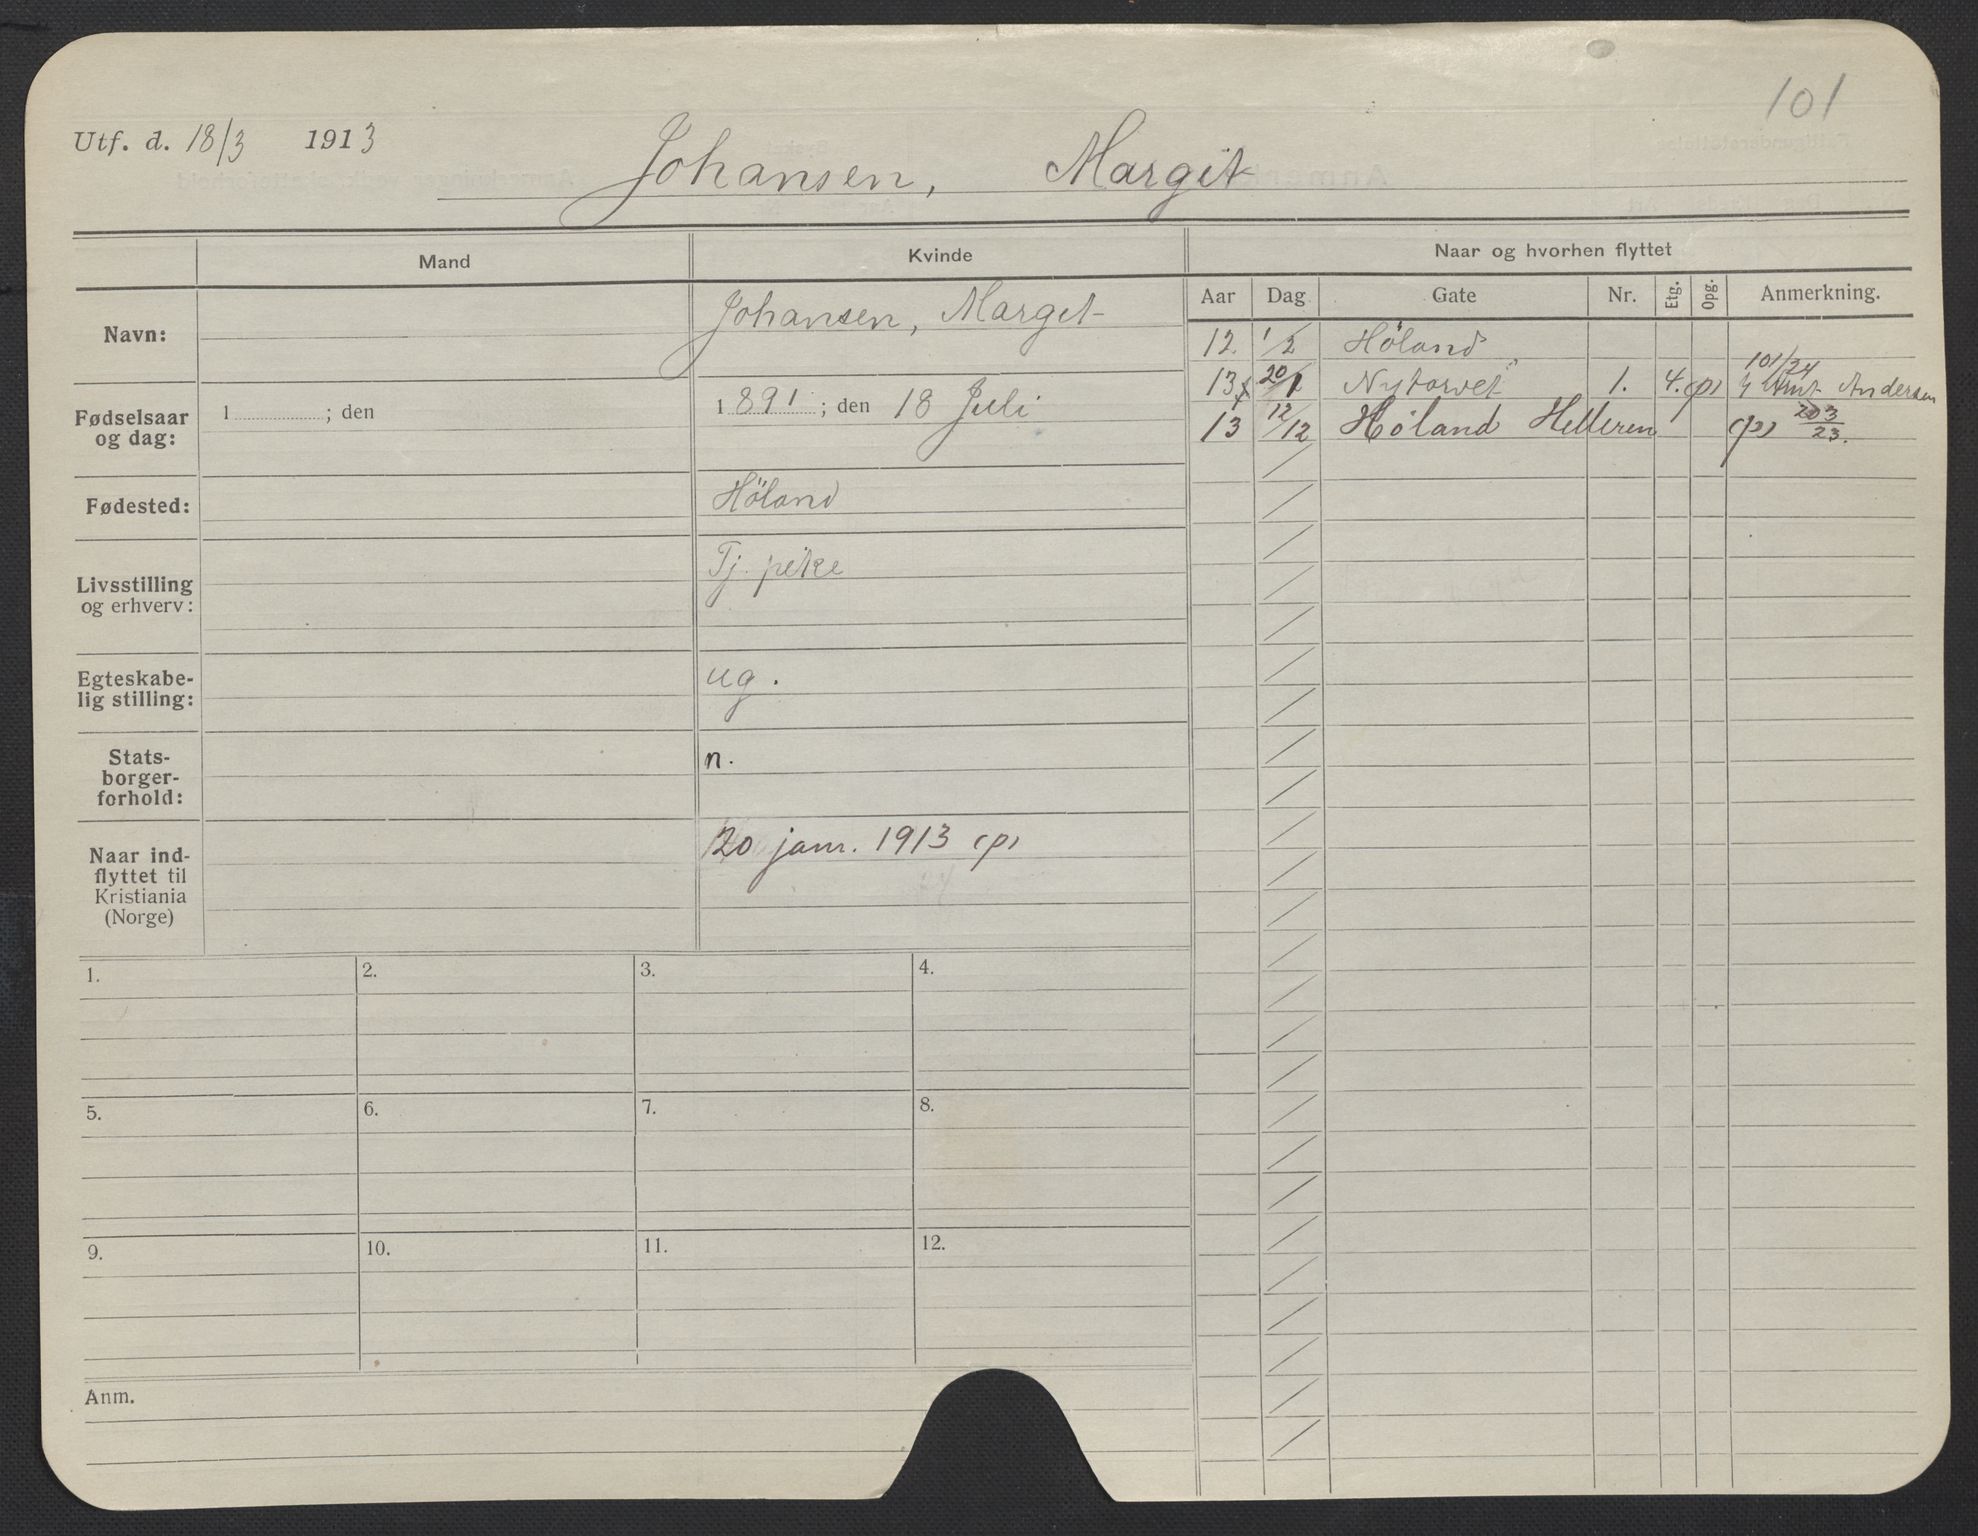 101
Utf. d. 18/3 1913
Johansen, Margit
Mand
Kvinde
Naar og hvorhen flyttet
Aar Dag Gate Nr. Etg. Opg. Anmerkning.
Navn:
Johansen, Margit
Fødselsaar
og dag:
1 ; den
1891 ; den 18 Juli
Fødested:
Höland
Livsstilling
og erhverv:
Tj. pike
Egteskabe-
lig stilling:
ug.
Stats-
borger-
forhold:
n.
Naar ind-
flyttet til
Kristiania
(Norge)
20 janr. 1913 (p)
12. 1/2 Höland
13 20/1 Nytorvet 1. 4. (p) 101/24 Andersen
13 12/12 Høland Helleren (p) 203/23.
1. 2. 3. 4.
5. 6. 7. 8.
9. 10. 11. 12.
Anm.